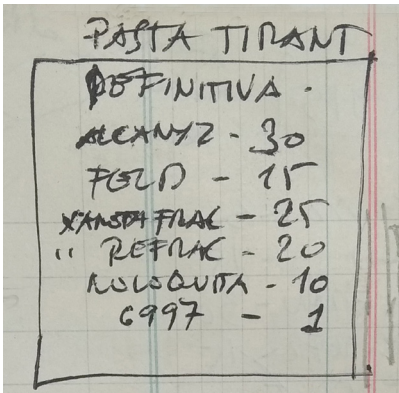 PASTA TIRANT
DEFINITIVA.
ALCANYZ - 30
FELD - 15
XAMOTA FRAC - 25
" REFRAC - 20
MOLOQUITA - 10
6997 - 1